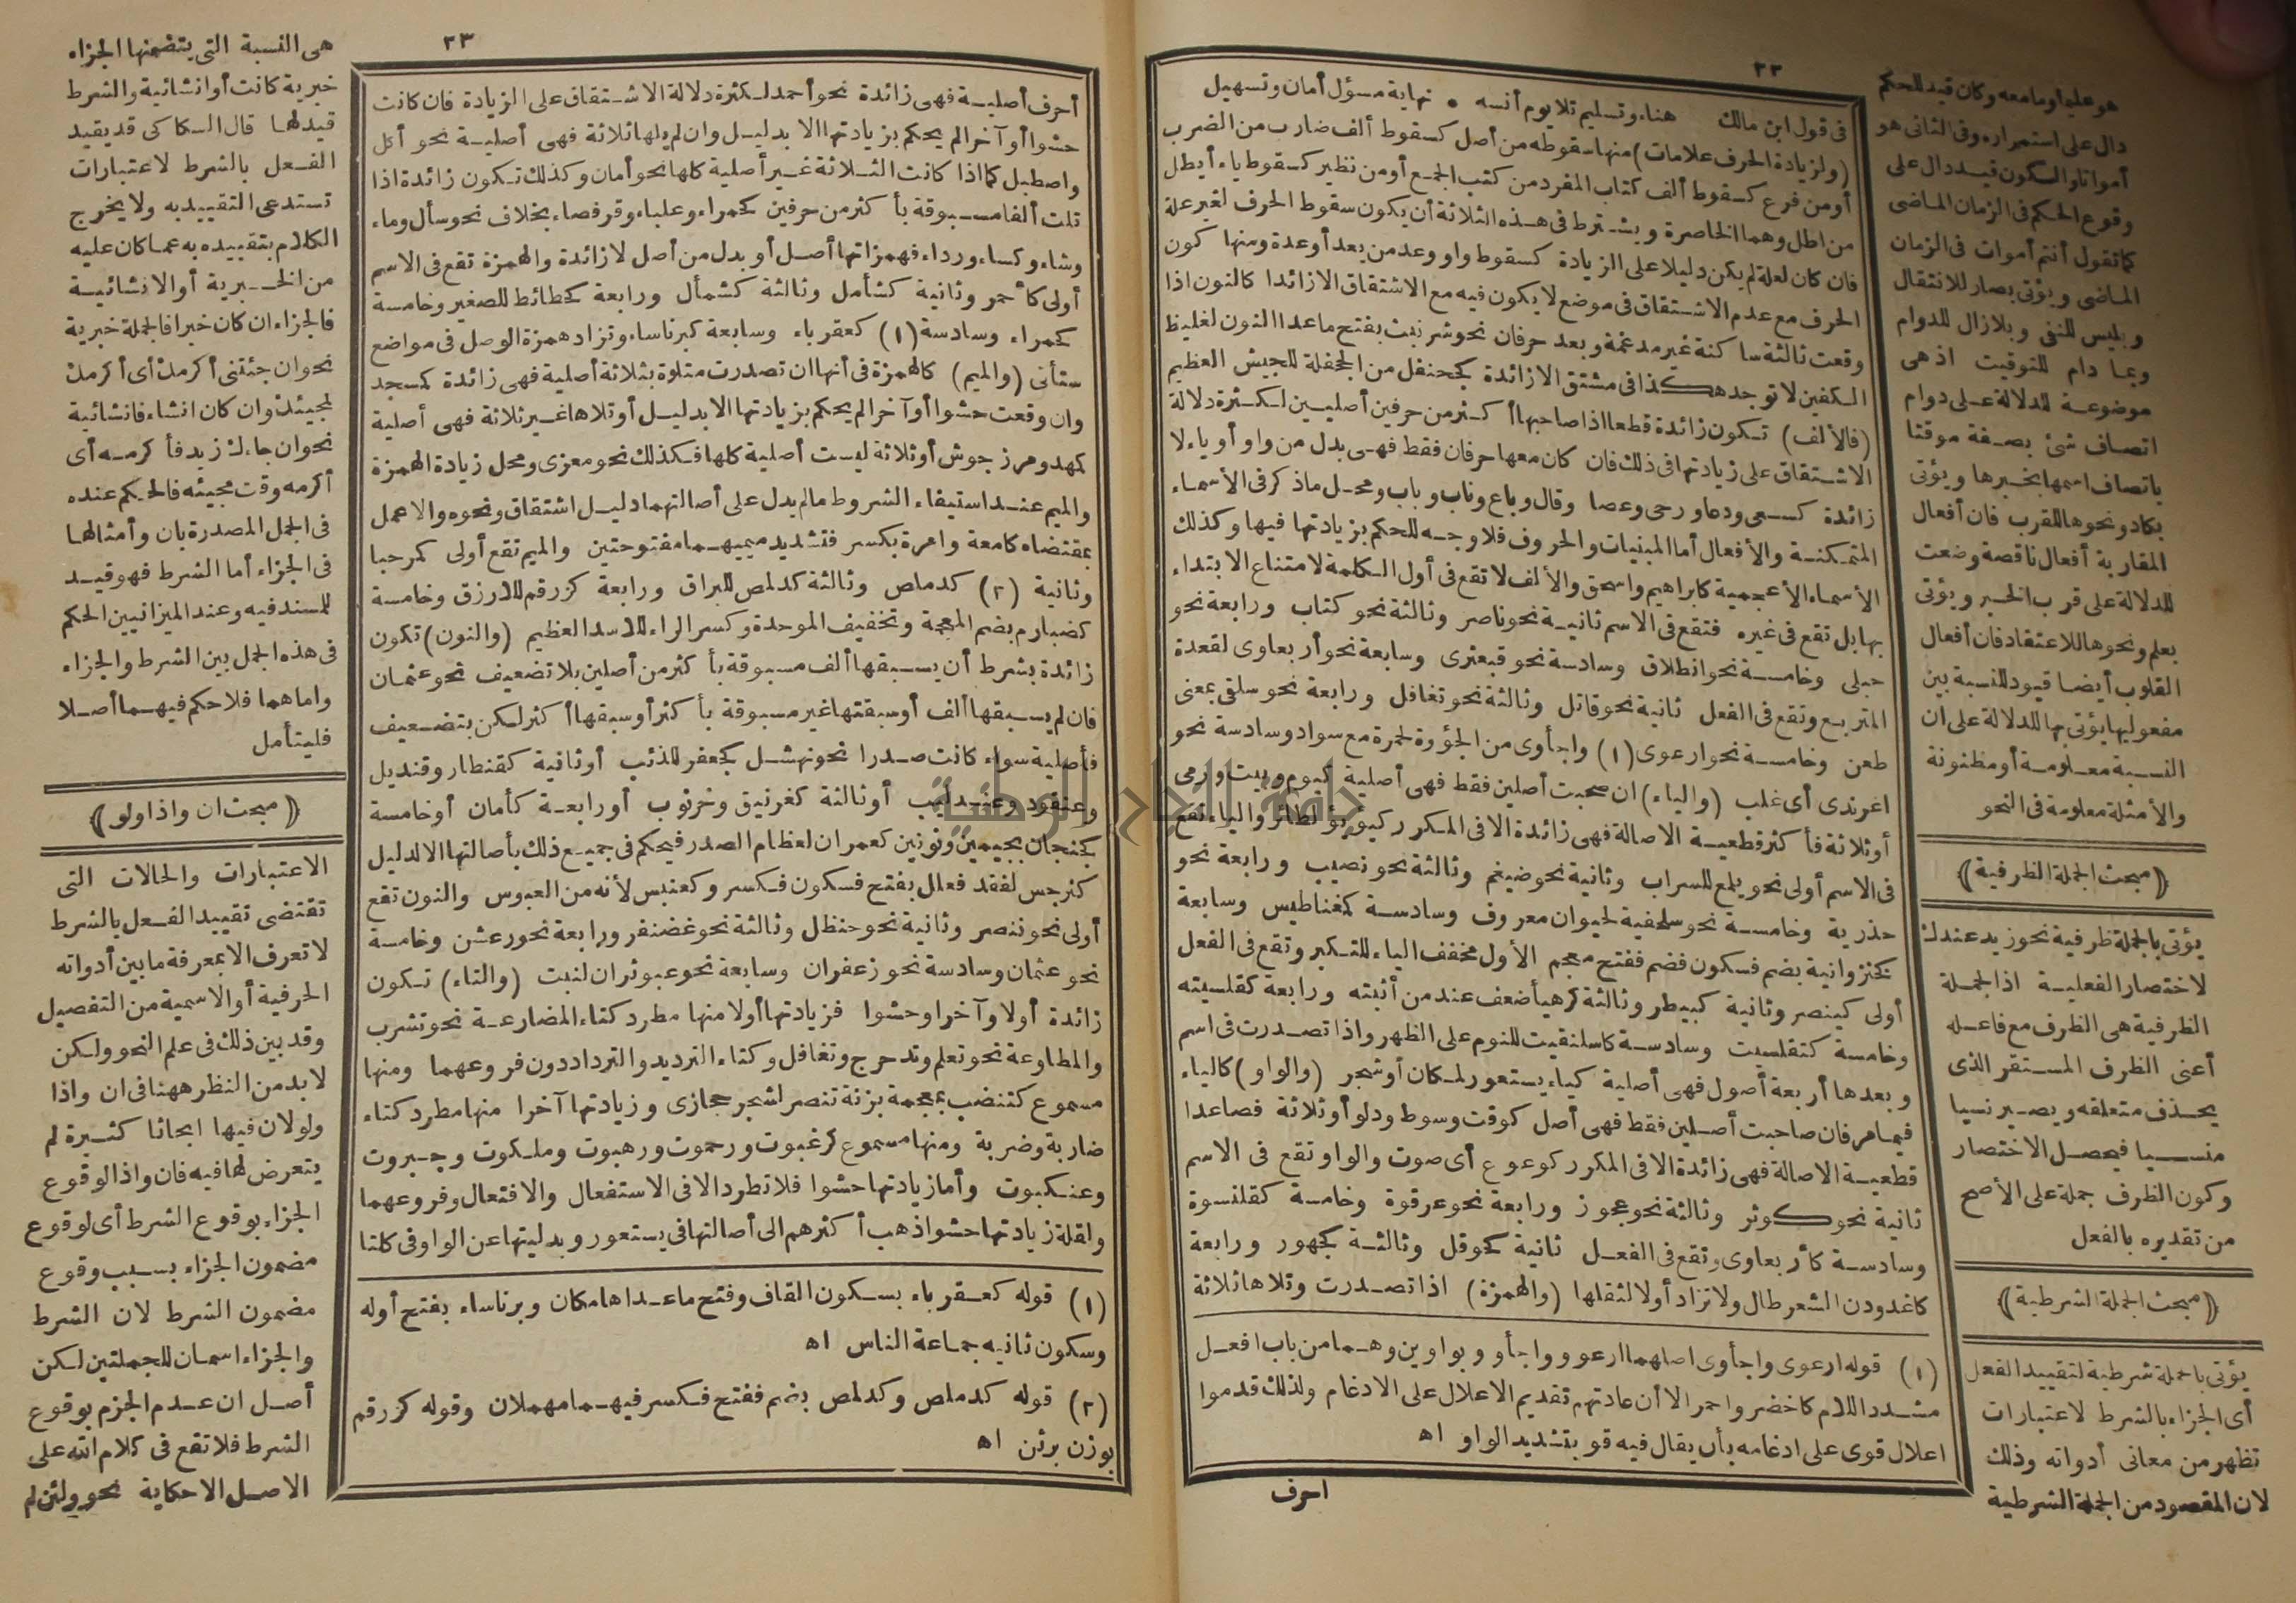 ٢٢
فى قول ابن مالك هناء وتسليم تلا يوم أنسه • نهاية مسؤل أمان وتسهيل
(ولزيادة الحرف علامات) منها سقوطه من أصل كسقوط ألف ضارب من الضرب
أومن فرع كسقوط ألف كتاب المفرد من كتب الجمع أومن نظير كسقوط ياء أيطل
من اطل وهما الخاصرة ويشترط فى هذه الثلاثة أن يكون سقوط الحرف لغير علة
فان كان لعلة لم يكن دليلا على الزيادة كسقوط واو وعد من يعد أوعدة ومنها كون
الحرف مع عدم الاشتقاق فى موضع لا يكون فيه مع الاشتقاق الا زائدا كالنون اذا
وقعت ثالثة ساكنة غير مدغمة وبعد حرفان نحو شرنبث بفتح ماعدا النون لغليظ
الكفين لا توجد هكذا فى مشتق الا زائدة كجحنفل من الجحفلة للجيش العظيم
(فالألف) تكون زائدة قطعا اذا صاحبها أكثر من حرفين أصليين لكثرة دلالة
الاشتقاق على زيادتها فى ذلك فان كان معها حرفان فقط فهى بدل من واو أو ياء لا
زائدة كسعى ودعا ورحى وعصا وقال وباع وناب وباب ومحل ماذكر فى الأسماء
المتمكنة والأفعال أما المبنيات والحروف فلا وجه للحكم بزيادتها فيها وكذلك
الأسماء الأعجمية كابراهيم واسحق والألف لا تقع فى أول الكلمة لامتناع الابتداء
بها بل تقع فى غيره فتقع فى الاسم ثانية نحو ناصر وثالثة نحو كتاب ورابعة نحو
حبلى وخامسة نحو انطلاق وسادسة نحو قبعثرى وسابعة نحو أربعاوى لقعدة
المتربع وتقع فى الفعل ثانية نحو قاتل وثالثة نحو تغافل ورابعة نحو سلقى بمعنى
طعن وخامسة نحو ارعوى (١) واجأوى من الجؤوة لحمرة مع سواد وسادسة نحو
اغرندى أى غلب (والياء) ان صحبت أصلين فقط فهى أصلية كيوم وبيت ورمى
أو ثلاثة فأكثر قطعية الاصالة فهى زائدة الا فى المكرر كيؤيؤ لطائر والياء تقع
فى الاسم أولى نحو يلمع للسراب وثانية نحو ضيغم وثالثة نحو نصيب ورابعة نحو
حذرية وخامسة نحو سلحفية لحيوان معروف وسادسة كمغناطيس وسابعة
كخنزوانية بضم فسكون فضم ففتح معجم الأول مخفف الياء للتكبر وتقع فى الفعل
أولى كينصر وثانية كبيطر وثالثة كرهيأ ضعف عند من أثبته ورابعة كقلسيته
وخامسة كتقلسيت وسادسة كاسلنقيت للنوم على الظهر واذا تصدرت فى اسم
وبعدها أربعة أصول فهى أصلية كياء يستعور لمكان أو شجر (والواو) كالياء
فيما مر فان صاحبت أصلين فقط فهى أصل كوقت وسوط ودلو أو ثلاثة فصاعدا
قطعية الاصالة فهى زائدة الا فى المكرر كوعوع أى صوت والواو تقع فى الاسم
ثانية نحو كوثر وثالثة نحو عجوز ورابعة نحو عرقوة وخامسة كقلنسوة
وسادسة كأربعاوى وتقع فى الفعل ثانية كحوقل وثالثة كجهور ورابعة
كاغدودن الشعر طال ولا تزاد أولا لثقلها (والهمزة) اذا تصدرت وتلاها ثلاثة
(١) قوله ارعوى واجأوى اصلهما ارعوو واجأوو بواوين وهما من باب افعل
مشدد اللام كاخضر واحمر الا أن عادتهم تقديم الاعلال على الادغام ولذلك قدموا
اعلال قوى على ادغامه بأن يقال فيه قو بتشديد الواو اه
احرف
هو عليها وما معه وكان قيد للحكم
دال على استمراره وفى الثانى هو
أمواتا والسكون قيد دال على
وقوع الحكم فى الزمان الماضى
كما تقول أنتم أموات فى الزمان
الماضى ويؤتى بصار للانتقال
وبليس للنفى وبلازال للدوام
وبما دام للتوقيت اذ هى
موضوعة للدلالة على دوام
اتصاف شئ بصفة موقتا
باتصاف اسمها بخبرها ويؤتى
بكاد ونحوها للقرب فان أفعال
المقاربة أفعال ناقصة وضعت
للدلالة على قرب الخبر ويؤتى
بعلم ونحوها للاعتقاد فان أفعال
القلوب أيضا قيود للنسبة بين
مفعوليها يؤتى بها للدلالة على ان
النسبة معلومة أو مظنونة
والأمثلة معلومة فى النحو
﴿مبحث الجملة الظرفية﴾
يؤتى بالجملة ظرفية نحو زيد عندك
لاختصار الفعلية اذ الجملة
الظرفية هى الظرف مع فاعله
أعنى الظرف المستقر الذى
يحذف متعلقه ويصير نسيا
منسيا فيحصل الاختصار
وكون الظرف جملة على الأصح
من تقديره بالفعل
﴿مبحث الجملة الشرطية﴾
يؤتى بالجملة شرطية لتقييد الفعل
أى الجزاء بالشرط لاعتبارات
تظهر من معانى أدواته وذلك
لان المقصود من الجملة الشرطية
٢٣
أحرف أصلية فهى زائدة نحو أحمد لكثرة دلالة الاشتقاق على الزيادة فان كانت
حشوا أو آخرا لم يحكم بزيادتها الا بدليل وان لم يلها ثلاثة فهى أصلية نحو أكل
واصطبل كما اذا كانت الثلاثة غير أصلية كلها نحو أمان وكذلك تكون زائدة اذا
تلت ألفا مسبوقة بأكثر من حرفين كحمراء وعلباء وقرفصاء بخلاف نحو سأل وماء
وشاء وكساء ورداء فهمزاتها أصل أو بدل من أصل لا زائدة والهمزة تقع فى الاسم
أولى كأحمر وثانية كشأمل وثالثة كشمأل ورابعة كحطائط للصغير وخامسة
كحمراء وسادسة (١) كعقرباء وسابعة كبرناساء وتزاد همزة الوصل فى مواضع
ستأتى (والميم) كالهمزة فى أنها ان تصدرت متلوة بثلاثة أصلية فهى زائدة كمسجد
وان وقعت حشوا أو آخرا لم يحكم بزيادتها الا بدليل أو تلاها غير ثلاثة فهى أصلية
كمهد ومرزجوش أو ثلاثة ليست أصلية كلها فكذلك نحو معزى ومحل زيادة الهمزة
والميم عند استيفاء الشروط ما لم يدل على أصالتهما دليل اشتقاق ونحوه والا عمل
بمقتضاه كامعة وامرة بكسر فتشديد ميميهما مفتوحتين والميم تقع أولى كمرحبا
وثانية (٢) كدملص وثالثة كدلمص للبراق ورابعة كزرقم للازرق وخامسة
كضبارم بضم المعجمة وتخفيف الموحدة وكسر الراء للاسد العظيم (والنون) تكون
زائدة بشرط أن يسبقها ألف مسبوقة بأكثر من أصلين بلا تضعيف نحو عثمان
فان لم يسبقها ألف أو سبقتها غير مسبوقة بأكثر أو سبقها أكثر لكن بتضعيف
فأصلية سواء كانت صدرا نحو نهشل كجعفر للذئب أو ثانية كقنطار وقنديل
وعنقود وعندليب أو ثالثة كغرنيق وخرنوب أو رابعة كأمان أو خامسة
كجنجان بجيمين ونونين كعمران لعظام الصدر فيحكم فى جميع ذلك بأصالتها الا لدليل
كنرجس لفقد فعلل بفتح فسكون فكسر وكعنبس لأنه من العبوس والنون تقع
أولى نحو ننصر وثانية نحو حنظل وثالثة نحو غضنفر ورابعة نحو رعشن وخامسة
نحو عثمان وسادسة نحو زعفران وسابعة نحو عبوثران لنبت (والتاء) تكون
زائدة أولا وآخرا وحشوا فزيادتها أولا منها مطرد كتاء المضارعة نحو تشرب
والمطاوعة نحو تعلم وتدحرج وتغافل وكتاء الترديد والترداد دون فروعهما ومنها
مسموع كتنضب بمعجمة بزنة تنصر لشجر حجازى وزيادتها آخرا منها مطرد كتاء
ضاربة وضربة ومنها مسموع كرغبوت ورحموت ورهبوت وملكوت وجبروت
وعنكبوت وأما زيادتها حشوا فلا تطرد الا فى الاستفعال والافتعال وفروعهما
ولقلة زيادتها حشوا ذهب أكثرهم الى أصالتها فى يستعور وبدليتها عن الواو فى كلتا
(١) قوله كعقرباء بسكون القاف وفتح ماعداها مكان وبرناساء بفتح أوله
وسكون ثانيه جماعة الناس اه
(٢) قوله كدملص وكدلمص بضم ففتح فكسر فيهما مهملان وقوله كزرقم
بوزن برثن اه
هى النسبة التى يتضمنها الجزاء
خبرية كانت أو انشائية والشرط
قيد لها قال السكاكى قد يقيد
الفعل بالشرط لاعتبارات
تستدعى التقييد به ولا يخرج
الكلام بتقييده به عما كان عليه
من الخبرية أو الانشائية
فالجزاء ان كان خبرا فالجملة خبرية
نحو ان جئتنى أكرمك أى أكرمك
لمجيئك وان كان انشاء فانشائية
نحو ان جاءك زيد فأكرمه أى
أكرمه وقت مجيئه فالحكم عنده
فى الجمل المصدرة بان وأمثالها
فى الجزاء أما الشرط فهو قيد
للمسند فيه وعند الميزانيين الحكم
فى هذه الجمل بين الشرط والجزاء
واما هما فلا حكم فيهما أصلا
فليتأمل
﴿مبحث ان واذا ولو﴾
الاعتبارات والحالات التى
تقتضى تقييد الفعل بالشرط
لا تعرف الا بمعرفة ما بين أدواته
الحرفية أو الاسمية من التفصيل
وقد بين ذلك فى علم النحو ولكن
لا بد من النظر ههنا فى ان واذا
ولو لان فيها ابحاثا كثيرة لم
يتعرض لها فيه فان واذا لوقوع
الجزاء بوقوع الشرط أى لوقوع
مضمون الجزاء بسبب وقوع
مضمون الشرط لان الشرط
والجزاء اسمان للجملتين لكن
أصل ان عدم الجزم بوقوع
الشرط فلا تقع فى كلام الله على
الاصل الا حكاية نحو ولئن لم
جامعة النجاح الوطنية